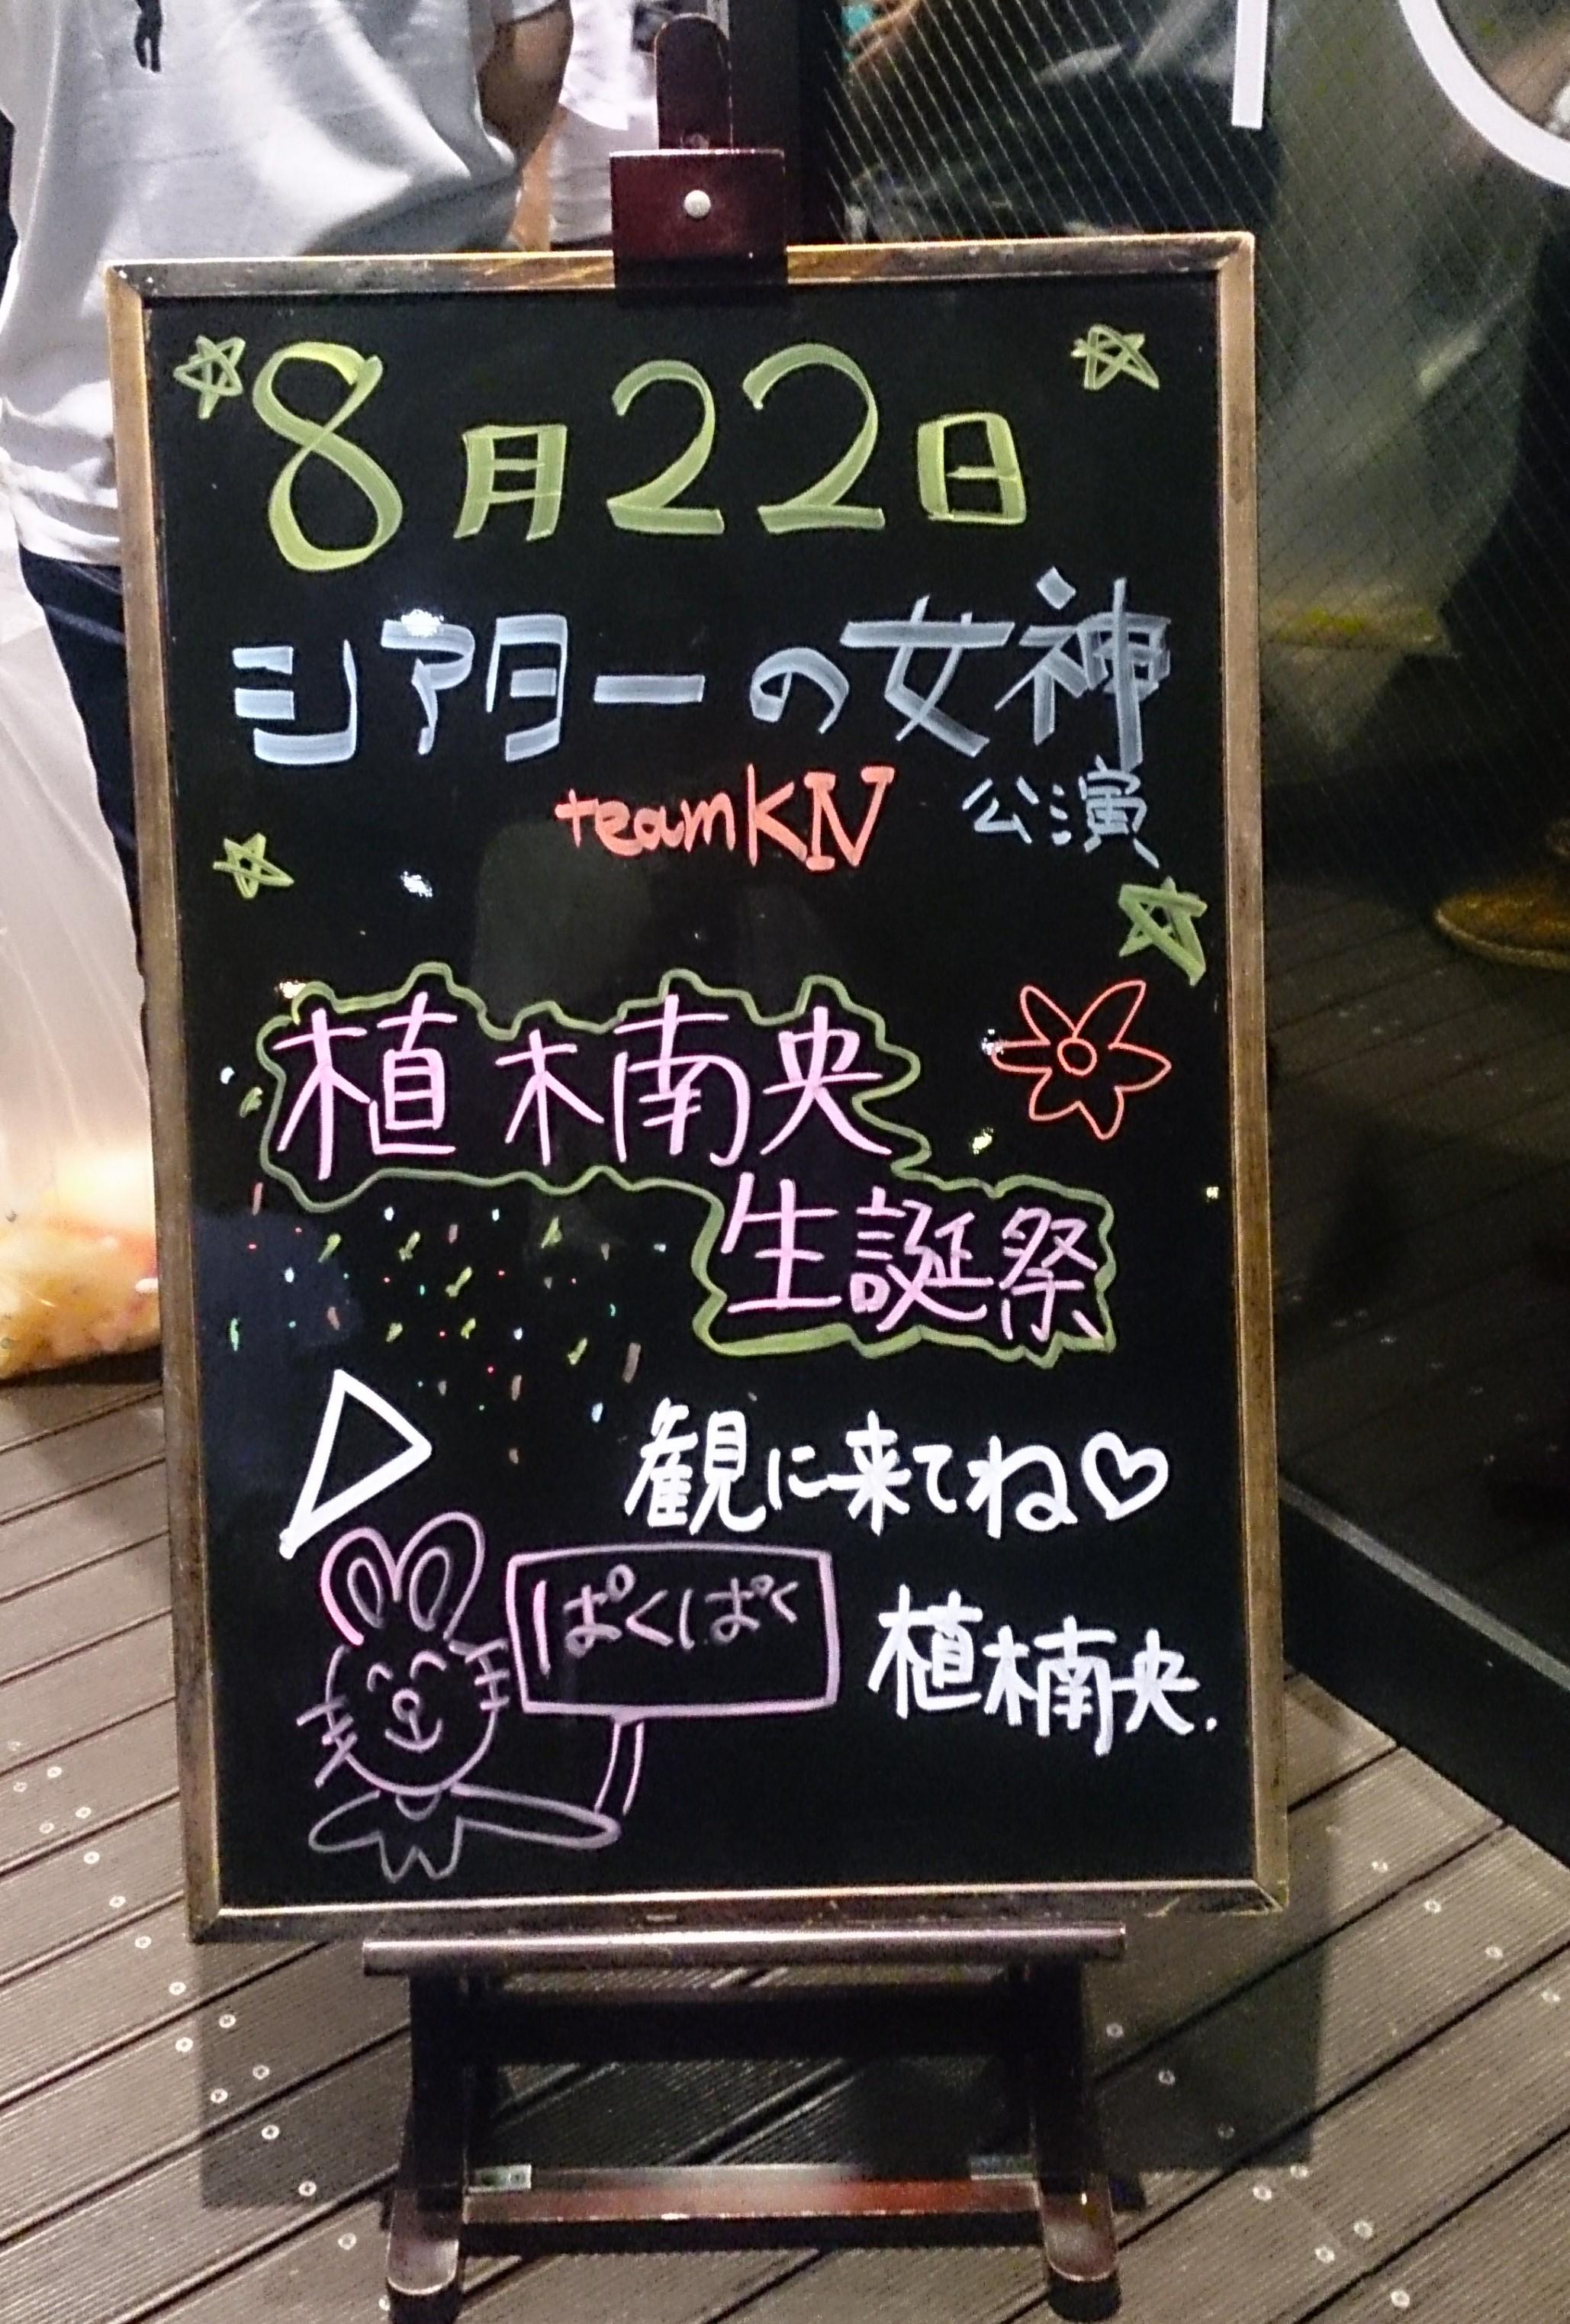 8月22日
シアターの女神
teamKⅣ 公演
植木南央
生誕祭
観に来てね♡
ぱくぱく
植木南央.